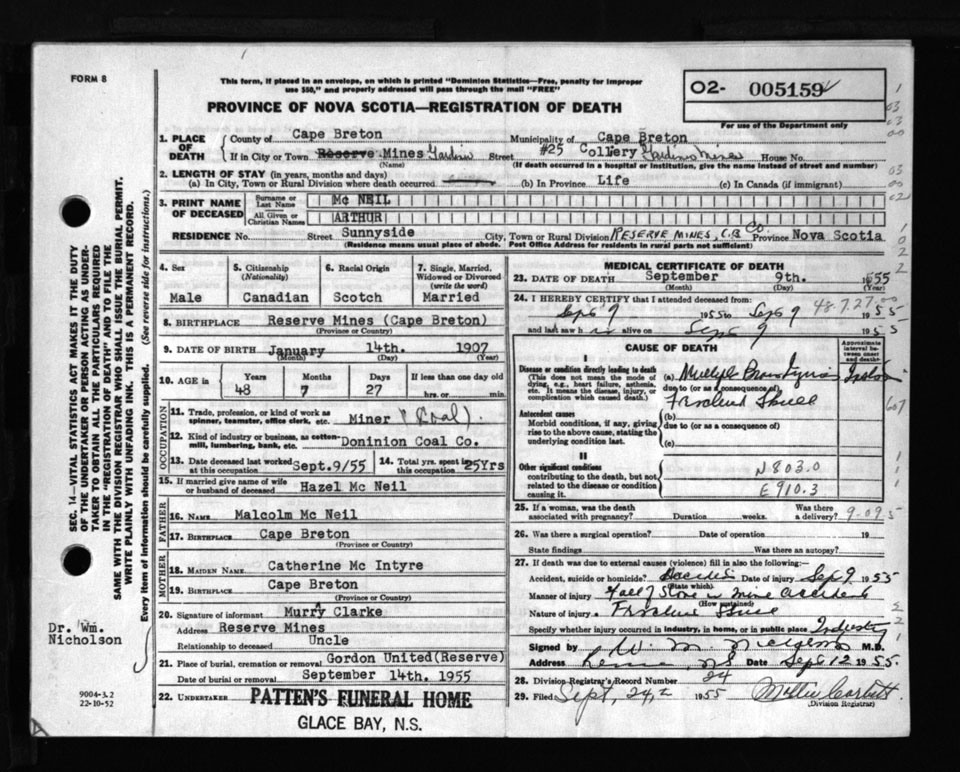 FORM 8
This form, if placed in an envelope, on which is printed "Dominion Statistics—Free, penalty for improper
use $50," and properly addressed will pass through the mail "FREE"
PROVINCE OF NOVA SCOTIA—REGISTRATION OF DEATH
O2- 005159
For use of the Department only
1. PLACE OF DEATH
County of Cape Breton Municipality of Cape Breton
If in City or Town Reserve Mines Gardiner Street #25 Collery Gardiner Mines House No.
(Name) (If death occurred in a hospital or institution, give the name instead of street and number)
2. LENGTH OF STAY (in years, months and days)
(a) In City, Town or Rural Division where death occurred (b) In Province Life (c) In Canada (if immigrant)
3. PRINT NAME OF DECEASED
Surname or Last Name Mc NEIL
All Given or Christian Names ARTHUR
RESIDENCE No. Street Sunnyside City, Town or Rural Division RESERVE MINES, C.B. CO. Province Nova Scotia
(Residence means usual place of abode. Post Office Address for residents in rural parts not sufficient)
4. Sex
Male
5. Citizenship (Nationality)
Canadian
6. Racial Origin
Scotch
7. Single, Married, Widowed or Divorced (write the word)
Married
8. BIRTHPLACE Reserve Mines (Cape Breton)
(Province or Country)
9. DATE OF BIRTH January 14th. 1907
(Month) (Day) (Year)
10. AGE in Years Months Days If less than one day old
48 7 27 hrs. or min.
OCCUPATION
11. Trade, profession, or kind of work as spinner, teamster, office clerk, etc. Miner (Coal).
12. Kind of industry or business, as cotton mill, lumbering, bank, etc. Doninion Coal Co.
13. Date deceased last worked at this occupation Sept.9/55
14. Total yrs. spent in this occupation 25Yrs
15. If married give name of wife or husband of deceased Hazel Mc Neil
FATHER
16. NAME Malcolm Mc Neil
17. BIRTHPLACE Cape Breton
(Province or Country)
MOTHER
18. MAIDEN NAME Catherine Mc Intyre
19. BIRTHPLACE Cape Breton
(Province or Country)
20. Signature of informant Murry Clarke
Address Reserve Mines
Relationship to deceased Uncle
21. Place of burial, cremation or removal Gordon United(Reserve)
Date of burial or removal September 14th. 1955
22. UNDERTAKER PATTEN'S FUNERAL HOME
GLACE BAY, N.S.
MEDICAL CERTIFICATE OF DEATH
23. DATE OF DEATH September 9th. 1955
(Month) (Day) (Year)
24. I HEREBY CERTIFY that I attended deceased from: 48.7.27
Sept 9 1955 to Sept 9 1955
and last saw h im alive on Sept 9 1955
CAUSE OF DEATH
Approximate interval between onset and death
I
Disease or condition directly leading to death
(This does not mean the mode of dying, e.g., heart failure, asthenia, etc. It means the disease, injury, or complication which caused death.)
(a) Multiple Brain
due to (or as a consequence of)
Fractured Skull
Antecedent causes
Morbid conditions, if any, giving rise to the above cause, stating the underlying condition last.
(b)
due to (or as a consequence of)
(c)
II
Other significant conditions
contributing to the death, but not related to the disease or condition causing it.
N803.0
E910.3
25. If a woman, was the death associated with pregnancy? Duration weeks. Was there a delivery? 9-09
26. Was there a surgical operation? Date of operation 19
State findings Was there an autopsy?
27. If death was due to external causes (violence) fill in also the following:
Accident, suicide or homicide? Accident Date of injury Sep 9 1955
(State which)
Manner of injury Fall of Stone in mine accident
(How sustained)
Nature of injury Fractured Skull
Specify whether injury occurred in industry, in home, or in public place Industry
Signed by M.D.
Address N.S. Date Sept 12 1955.
28. Division Registrar's Record Number 24
29. Filed Sept. 24, 1955 Millie Corbett
(Division Registrar)
SEC. 14—VITAL STATISTICS ACT MAKES IT THE DUTY
OF THE UNDERTAKER OR PERSON ACTING AS UNDER-
TAKER TO OBTAIN ALL THE PARTICULARS REQUIRED
IN THE "REGISTRATION OF DEATH" AND TO FILE THE
SAME WITH THE DIVISION REGISTRAR WHO SHALL ISSUE THE BURIAL PERMIT.
WRITE PLAINLY WITH UNFADING INK. THIS IS A PERMANENT RECORD.
Every item of information should be carefully supplied. (See reverse side for instructions.)
Dr. Wm.
Nicholson
9004-3.2
22-10-52